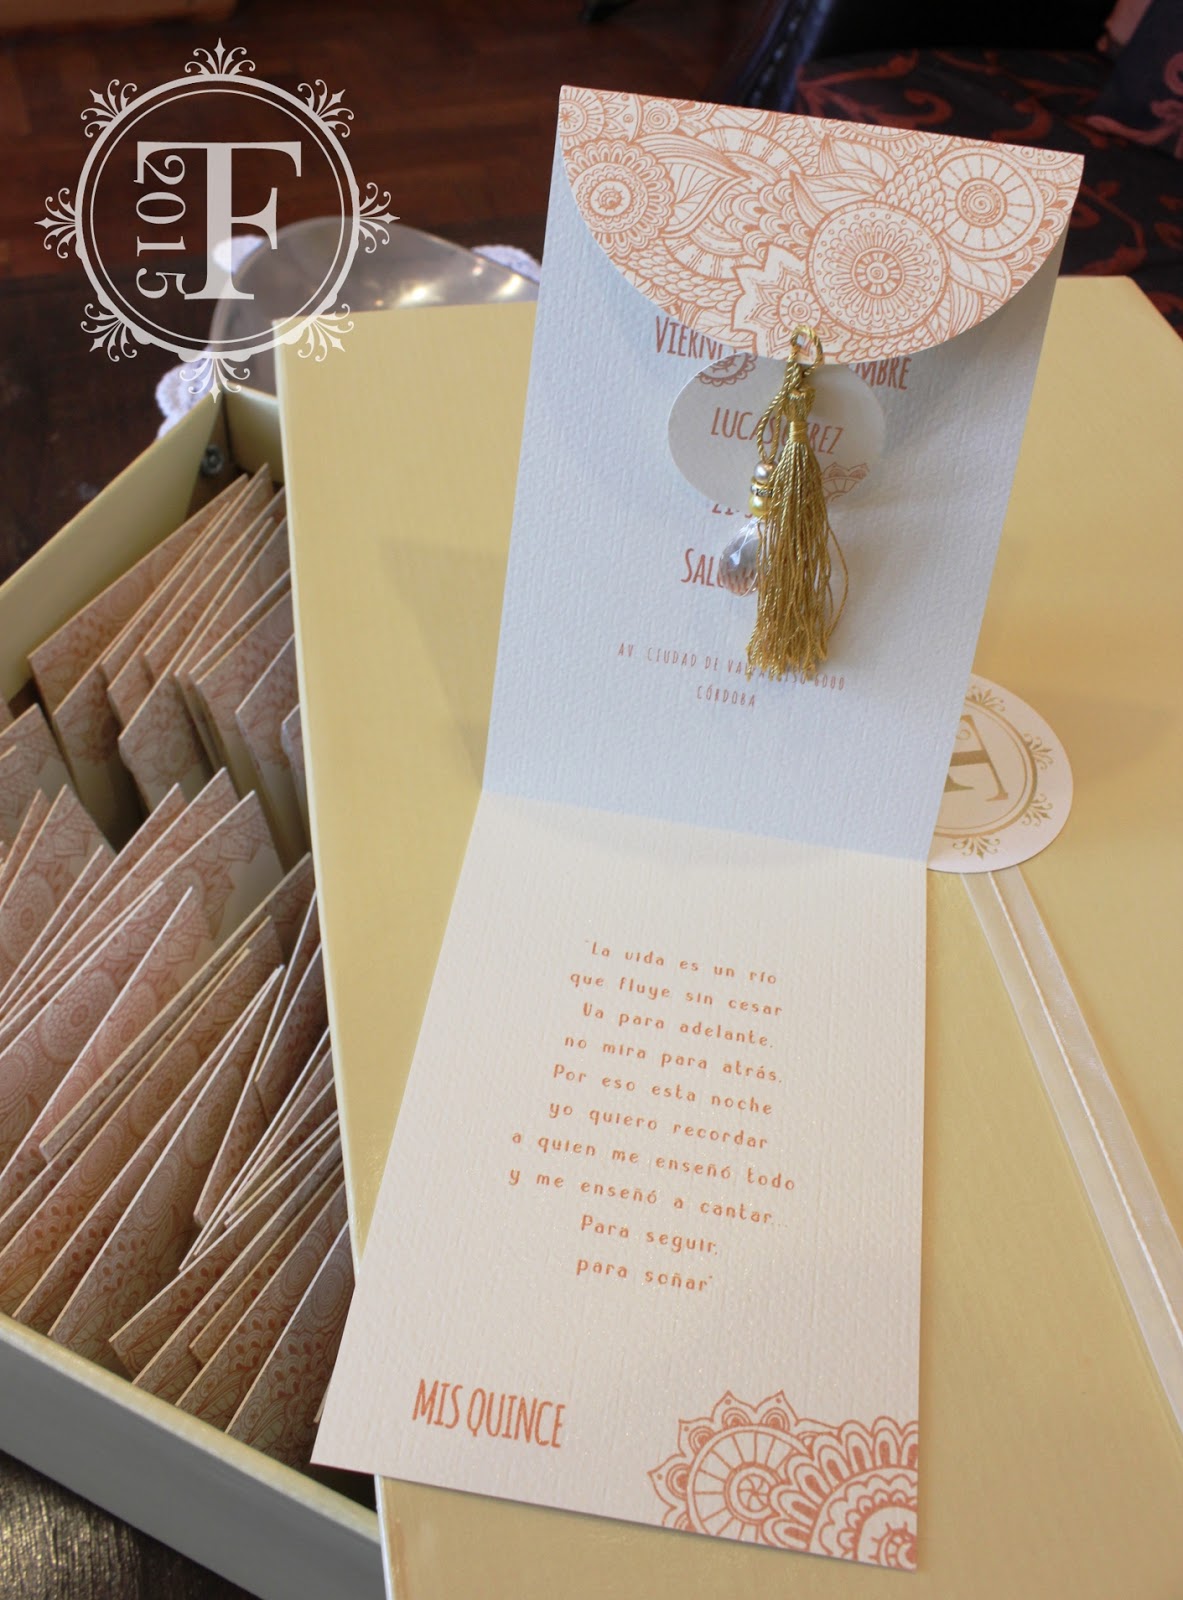 F
2015
LUCAS
AV. CIUDAD DE
6000
CÓRDOBA
F
"La vida es un río
que fluye sin cesar
Va para adelante,
no mira para atrás.
Por eso esta noche
yo quiero recordar
a quien me enseñó todo
y me enseñó a cantar...
Para seguir,
para soñar"
MIS QUINCE